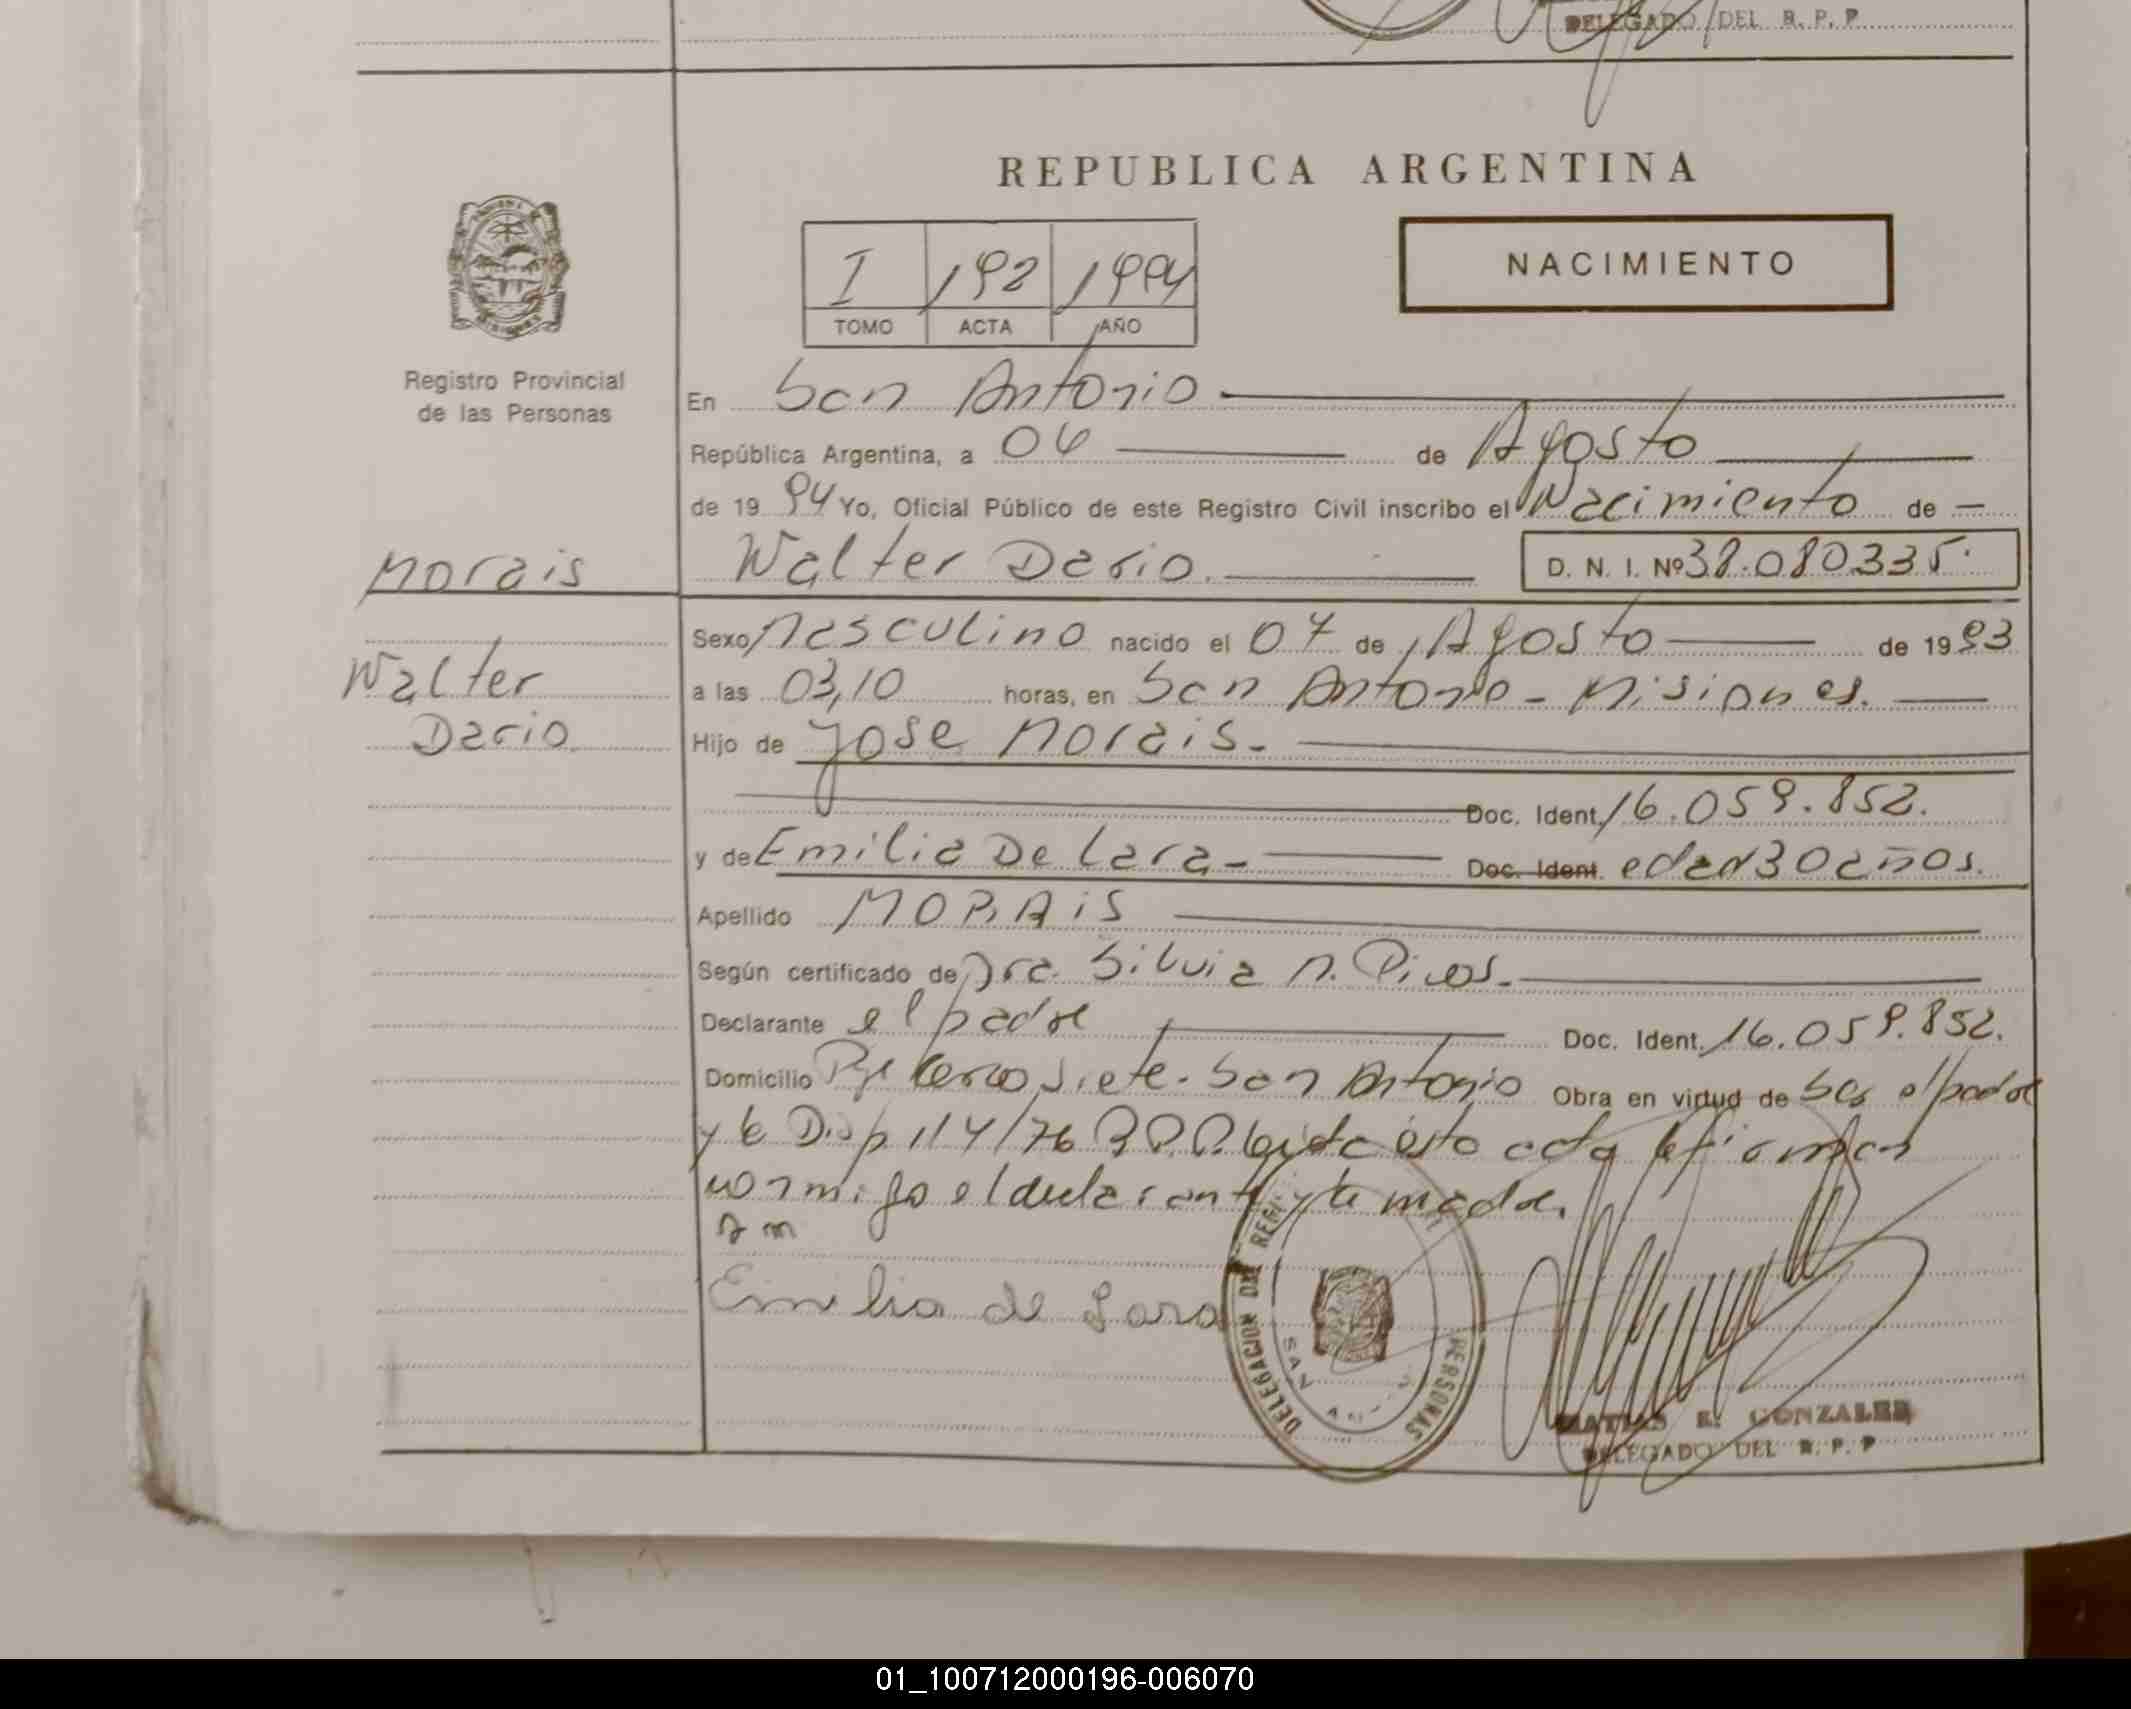 DELEGADO DEL R. P. P
REPUBLICA ARGENTINA
I 192 1994
TOMO ACTA AÑO
NACIMIENTO
Registro Provincial
de las Personas
En San Antonio
República Argentina, a 04 de Agosto
de 19 94 Yo, Oficial Público de este Registro Civil inscribo el Nacimiento de —
Morais
Walter Dario. D. N. I. Nº 38.080.335.
Sexo Masculino nacido el 07 de Agosto de 19 93
Walter
Dario.
a las 03,10 horas, en San Antonio - Misiones.
Hijo de Jose Morais.-
Doc. Ident. 16.059.852.
y de Emilia De Lara.- Doc. Ident. edad 30 años.
Apellido MORAiS
Según certificado de Dra. Silvia N.
Declarante el padre Doc. Ident. 16.059.852.
Domicilio Pje Cerco Siete - San Antonio Obra en virtud de ser el padre
y la Disp 114/76 R.P.P. leida esta acta la firman
conmigo el declarante y la madre.
J m
Emilia de Lara
DELEGACION DEL REG. PERSONAS
SAN
MATIAS E. GONZALEZ
DELEGADO DEL R. P. P
01_100712000196-006070